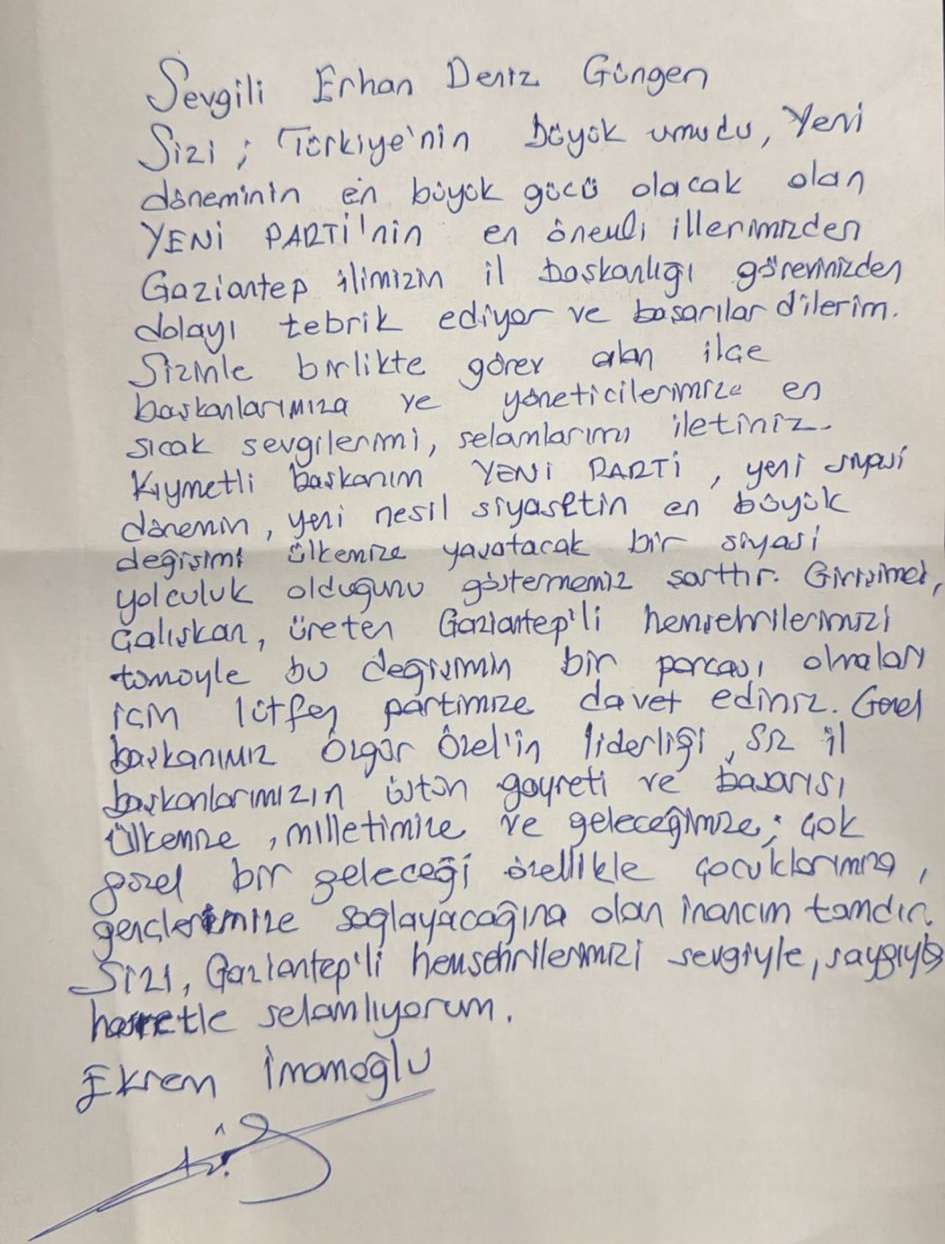 Sevgili Erhan Deniz Güngen
Sizi ; Türkiye'nin büyük umudu, Yeni
döneminin en büyük gücü olacak olan
YENİ PARTİ'nin en önemli illerimizden
Gaziantep ilimizin il başkanlığı görevinizden
dolayı tebrik ediyor ve başarılar dilerim.
Sizinle birlikte görev alan ilçe
başkanlarımıza ve yöneticilerimize en
sıcak sevgilerimi, selamlarımı iletiniz.
Kıymetli başkanım YENİ PARTİ , yeni siyasi
dönemin, yeni nesil siyasetin en büyük
değişimi ülkemize yaratacak bir siyasi
yolculuk olduğunu göstermemiz şarttır. Girişimci,
Çalışkan, üreten Gaziantep'li hemşehrilerimizi
tümüyle bu değişimin bir parçası olmaları
için lütfen partimize davet ediniz. Genel
başkanımız Özgür Özel'in liderliği, siz il
başkanlarımızın üstün gayreti ve başarısı
ülkemize, milletimize ve geleceğimize; çok
güzel bir geleceği özellikle çocuklarımıza,
gençlerimize sağlayacağına olan inancım tamdır.
Sizi, Gaziantep'li hemşehrilerimizi sevgiyle, saygıyla
hasretle selamlıyorum.
Ekrem İmamoğlu